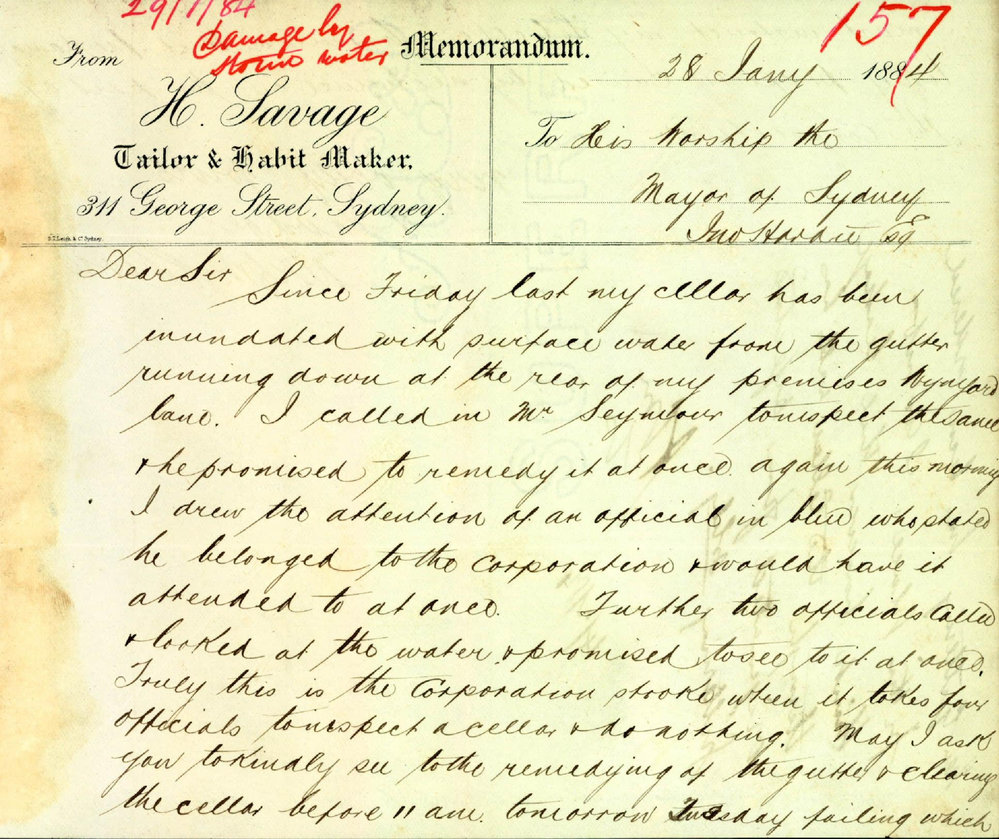 29/1/84
Damage by
storm water
157
Memorandum.
From
H. Savage
Tailor & Habit Maker,
311 George Street, Sydney.
S.T. Leigh & Co Sydney
28 Jany 1884
To His Worship the
Mayor of Sydney
Jno Hardie Esq
Dear Sir
Since Friday last my cellar has been
inundated with surface water from the gutter
running down at the rear of my premises Wynyard
lane. I called in Mr Seymour to inspect the same
& he promised to remedy it at once again this morning
I drew the attention of an official in blue who stated
he belonged to the corporation & would have it
attended to at once. Further two officials called
& looked at the water & promised to see to it at once.
Truly this is the Corporation stroke when it takes four
officials to inspect a cellar & do nothing. May I ask
you to kindly see to the remedying of the gutter & clearing
the cellar before 11 am. tomorrow Tuesday failing which